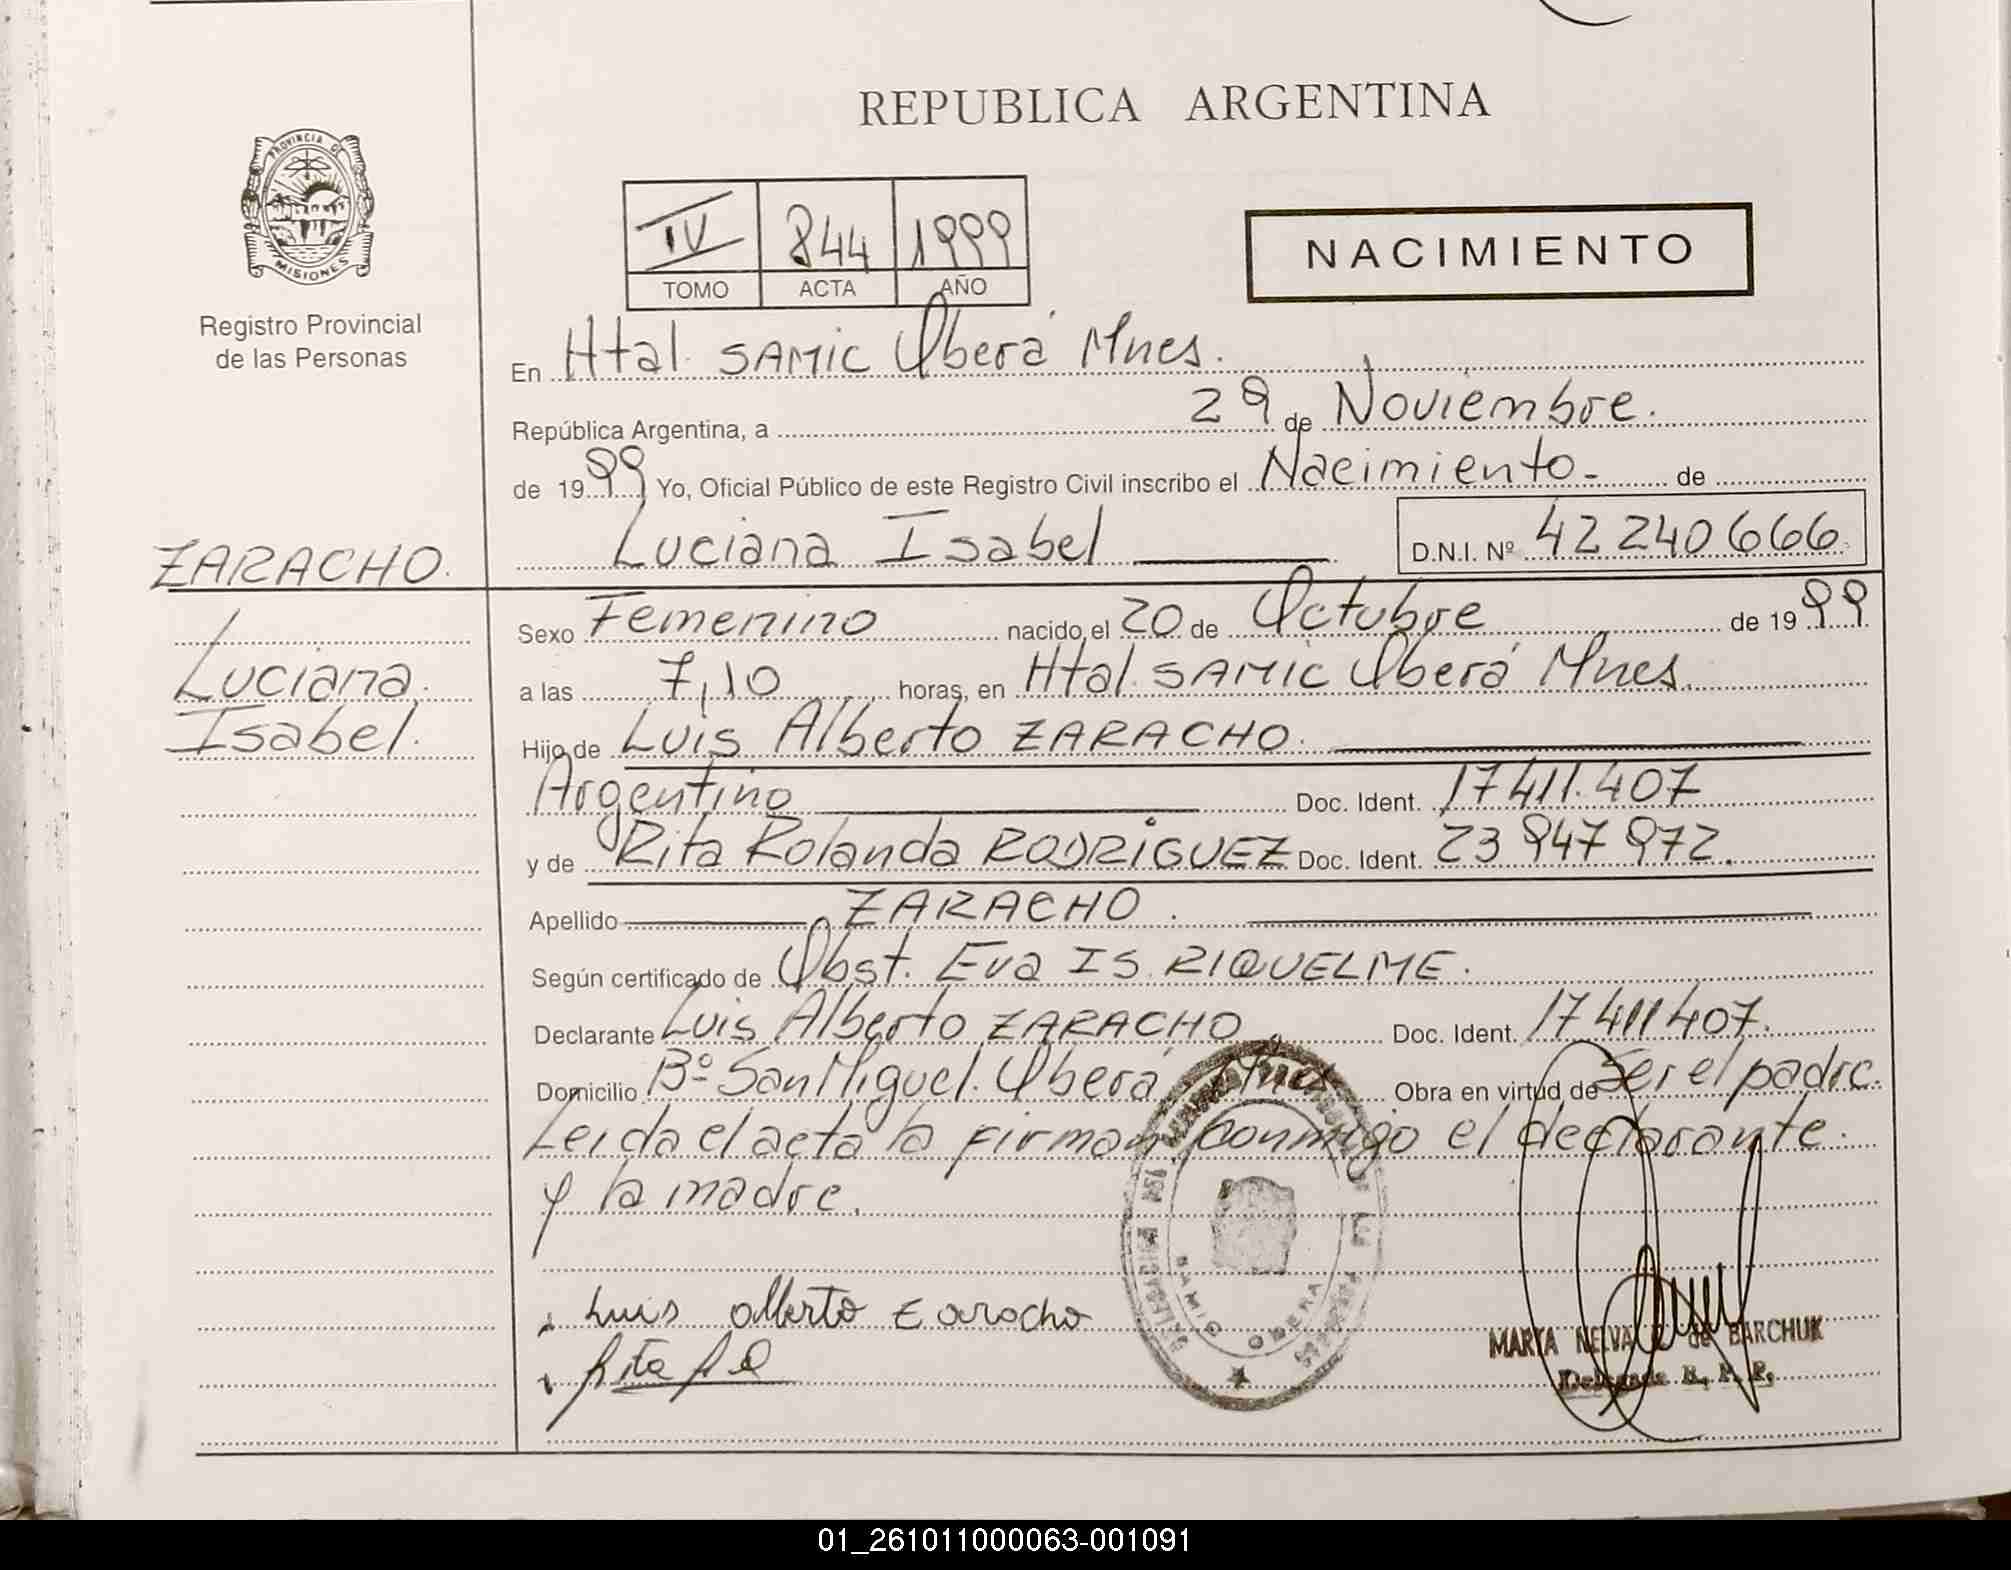 REPUBLICA ARGENTINA
PROVINCIA DE
MISIONES
Registro Provincial
de las Personas
IV 844 1999
TOMO ACTA AÑO
NACIMIENTO
En Htal. SAMIC Oberá Mnes.
República Argentina, a 29 de Noviembre.
de 1999 Yo, Oficial Público de este Registro Civil inscribo el Nacimiento - de
Luciana Isabel D.N.I. Nº 42 240 666
ZARACHO.
Luciana.
Isabel.
Sexo Femenino nacido el 20 de Octubre de 1999
a las 7,10 horas, en Htal. SAMIC Oberá Mnes.
Hijo de Luis Alberto ZARACHO.
Argentino Doc. Ident. 17411.407
y de Rita Rolanda RODRIGUEZ Doc. Ident. 23 947 972.
Apellido ZARACHO.
Según certificado de Obst. Eva IS. RIQUELME.
Declarante Luis Alberto ZARACHO. Doc. Ident. 17411407.
Domicilio Bº San Miguel. Oberá Mnes Obra en virtud de Ser el padre.
Leida el acta la firman conmigo el declarante.
y la madre.
Luis Alberto Zaracho
Rita
SAMIC OBERA
MARIA NELVA de BARCHUK
Delegada R. P. P.
01_261011000063-001091